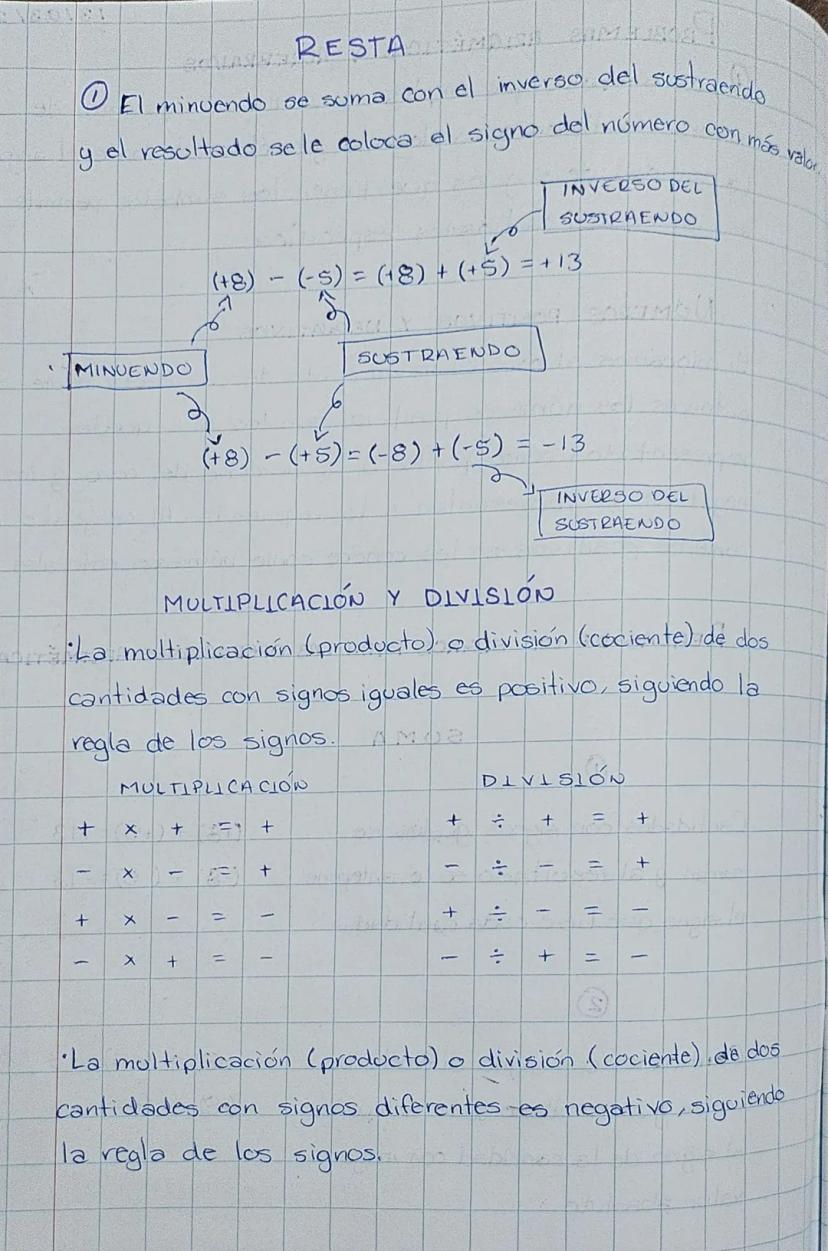 RESTA
① El minuendo se suma con el inverso del sustraendo
y el resultado se le coloca el signo del número con más valor
INVERSO DEL
SUSTRAENDO
(+8) - (-5) = (+8) + (+5) = +13
MINUENDO
SUSTRAENDO
(+8) - (+5) = (-8) + (-5) = -13
INVERSO DEL
SUSTRAENDO
MULTIPLICACIÓN Y DIVISIÓN
·La multiplicación (producto) o división (cociente) de dos
cantidades con signos iguales es positivo, siguiendo la
regla de los signos.
MULTIPLICACIÓN
+ x + = +
- x - = +
+ x - = -
- x + = -
DIVISIÓN
+ ÷ + = +
- ÷ - = +
+ ÷ - = -
- ÷ + = -
·La multiplicación (producto) o división (cociente) de dos
cantidades con signos diferentes es negativo, siguiendo
la regla de los signos.